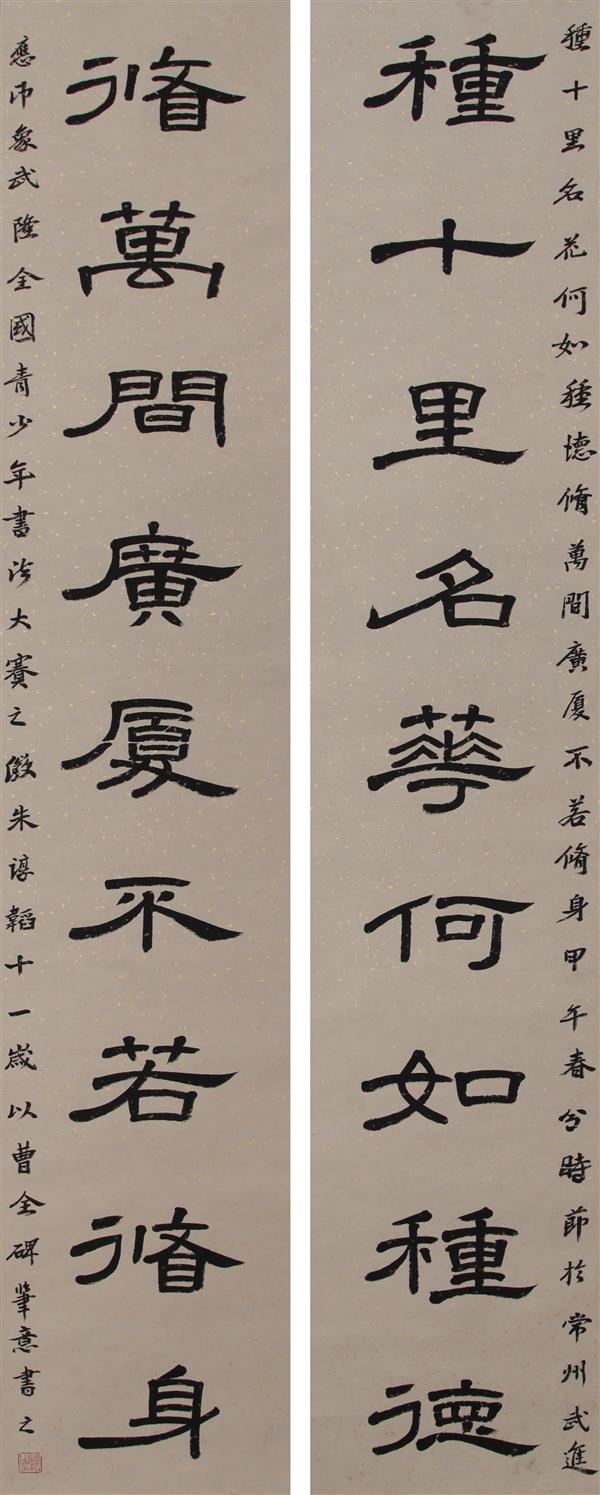 種十里名花何如種德脩萬間廣厦不若脩身甲午春分時節於常州武進
種十里名華何如種德
脩萬間廣厦不若脩身
應印象武隆全國青少年書法大賽之徵朱諄韜十一歲以曹全碑筆意書之